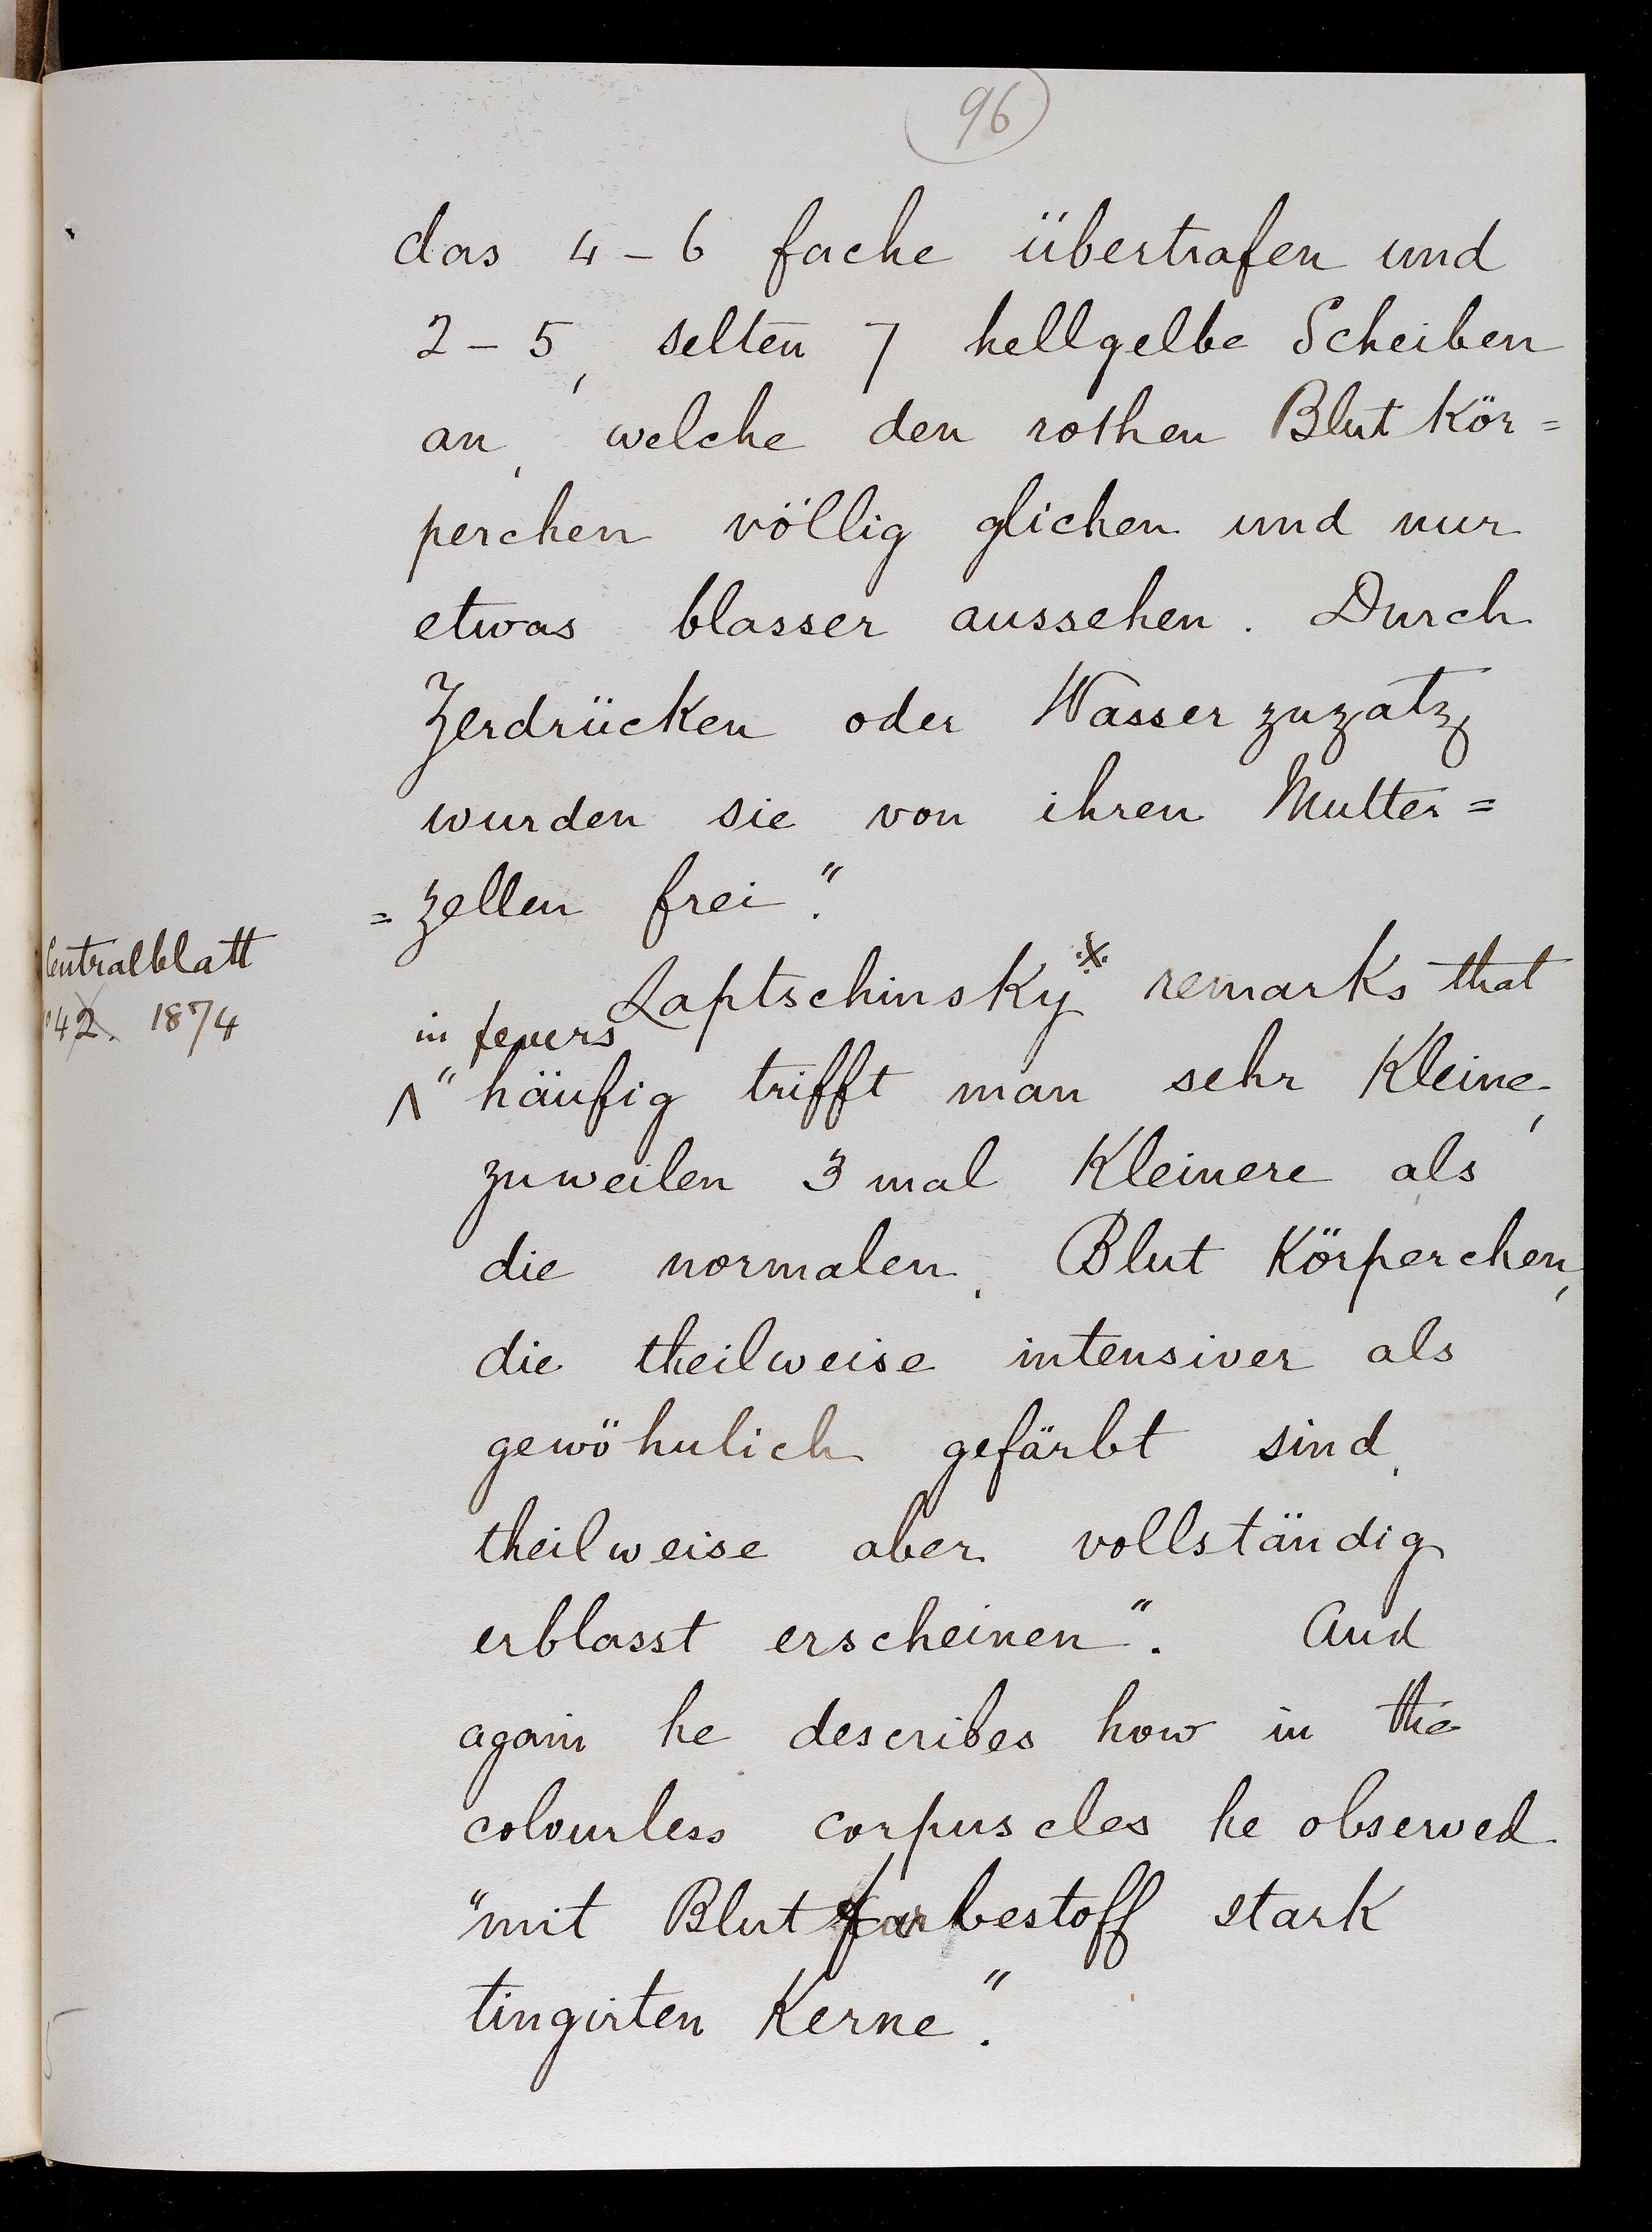 96
das 4 – 6 fache übertrafen und
2 – 5, selten 7 hellgelbe Scheiben
an, welche den rothen Blut Kör=
perchen völlig glichen und nur
etwas blasser aussehen. Durch
Zerdrücken oder Wasser zuzatz
wurden sie von ihren Mutter=
=zellen frei."
Centralblatt
42. 1874
Laptschinsky※ remarks that
in fevers
^"häufig trifft man sehr Kleine,
zuweilen 3 mal Kleinere als
die normalen, Blut Körperchen,
die theilweise intensiver als
gewöhnlich gefärbt sind,
theilweise aber vollständig
erblasst erscheinen". And
again he describes how in the
colourless corpuscles he observed
"mit Blutfarbestoff stark
tingirten Kerne."